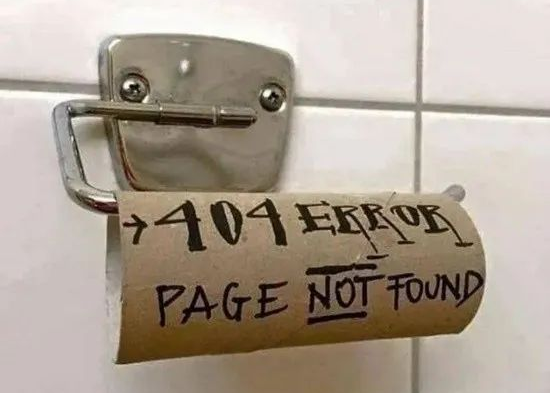 →404 ERROR
PAGE NOT FOUND